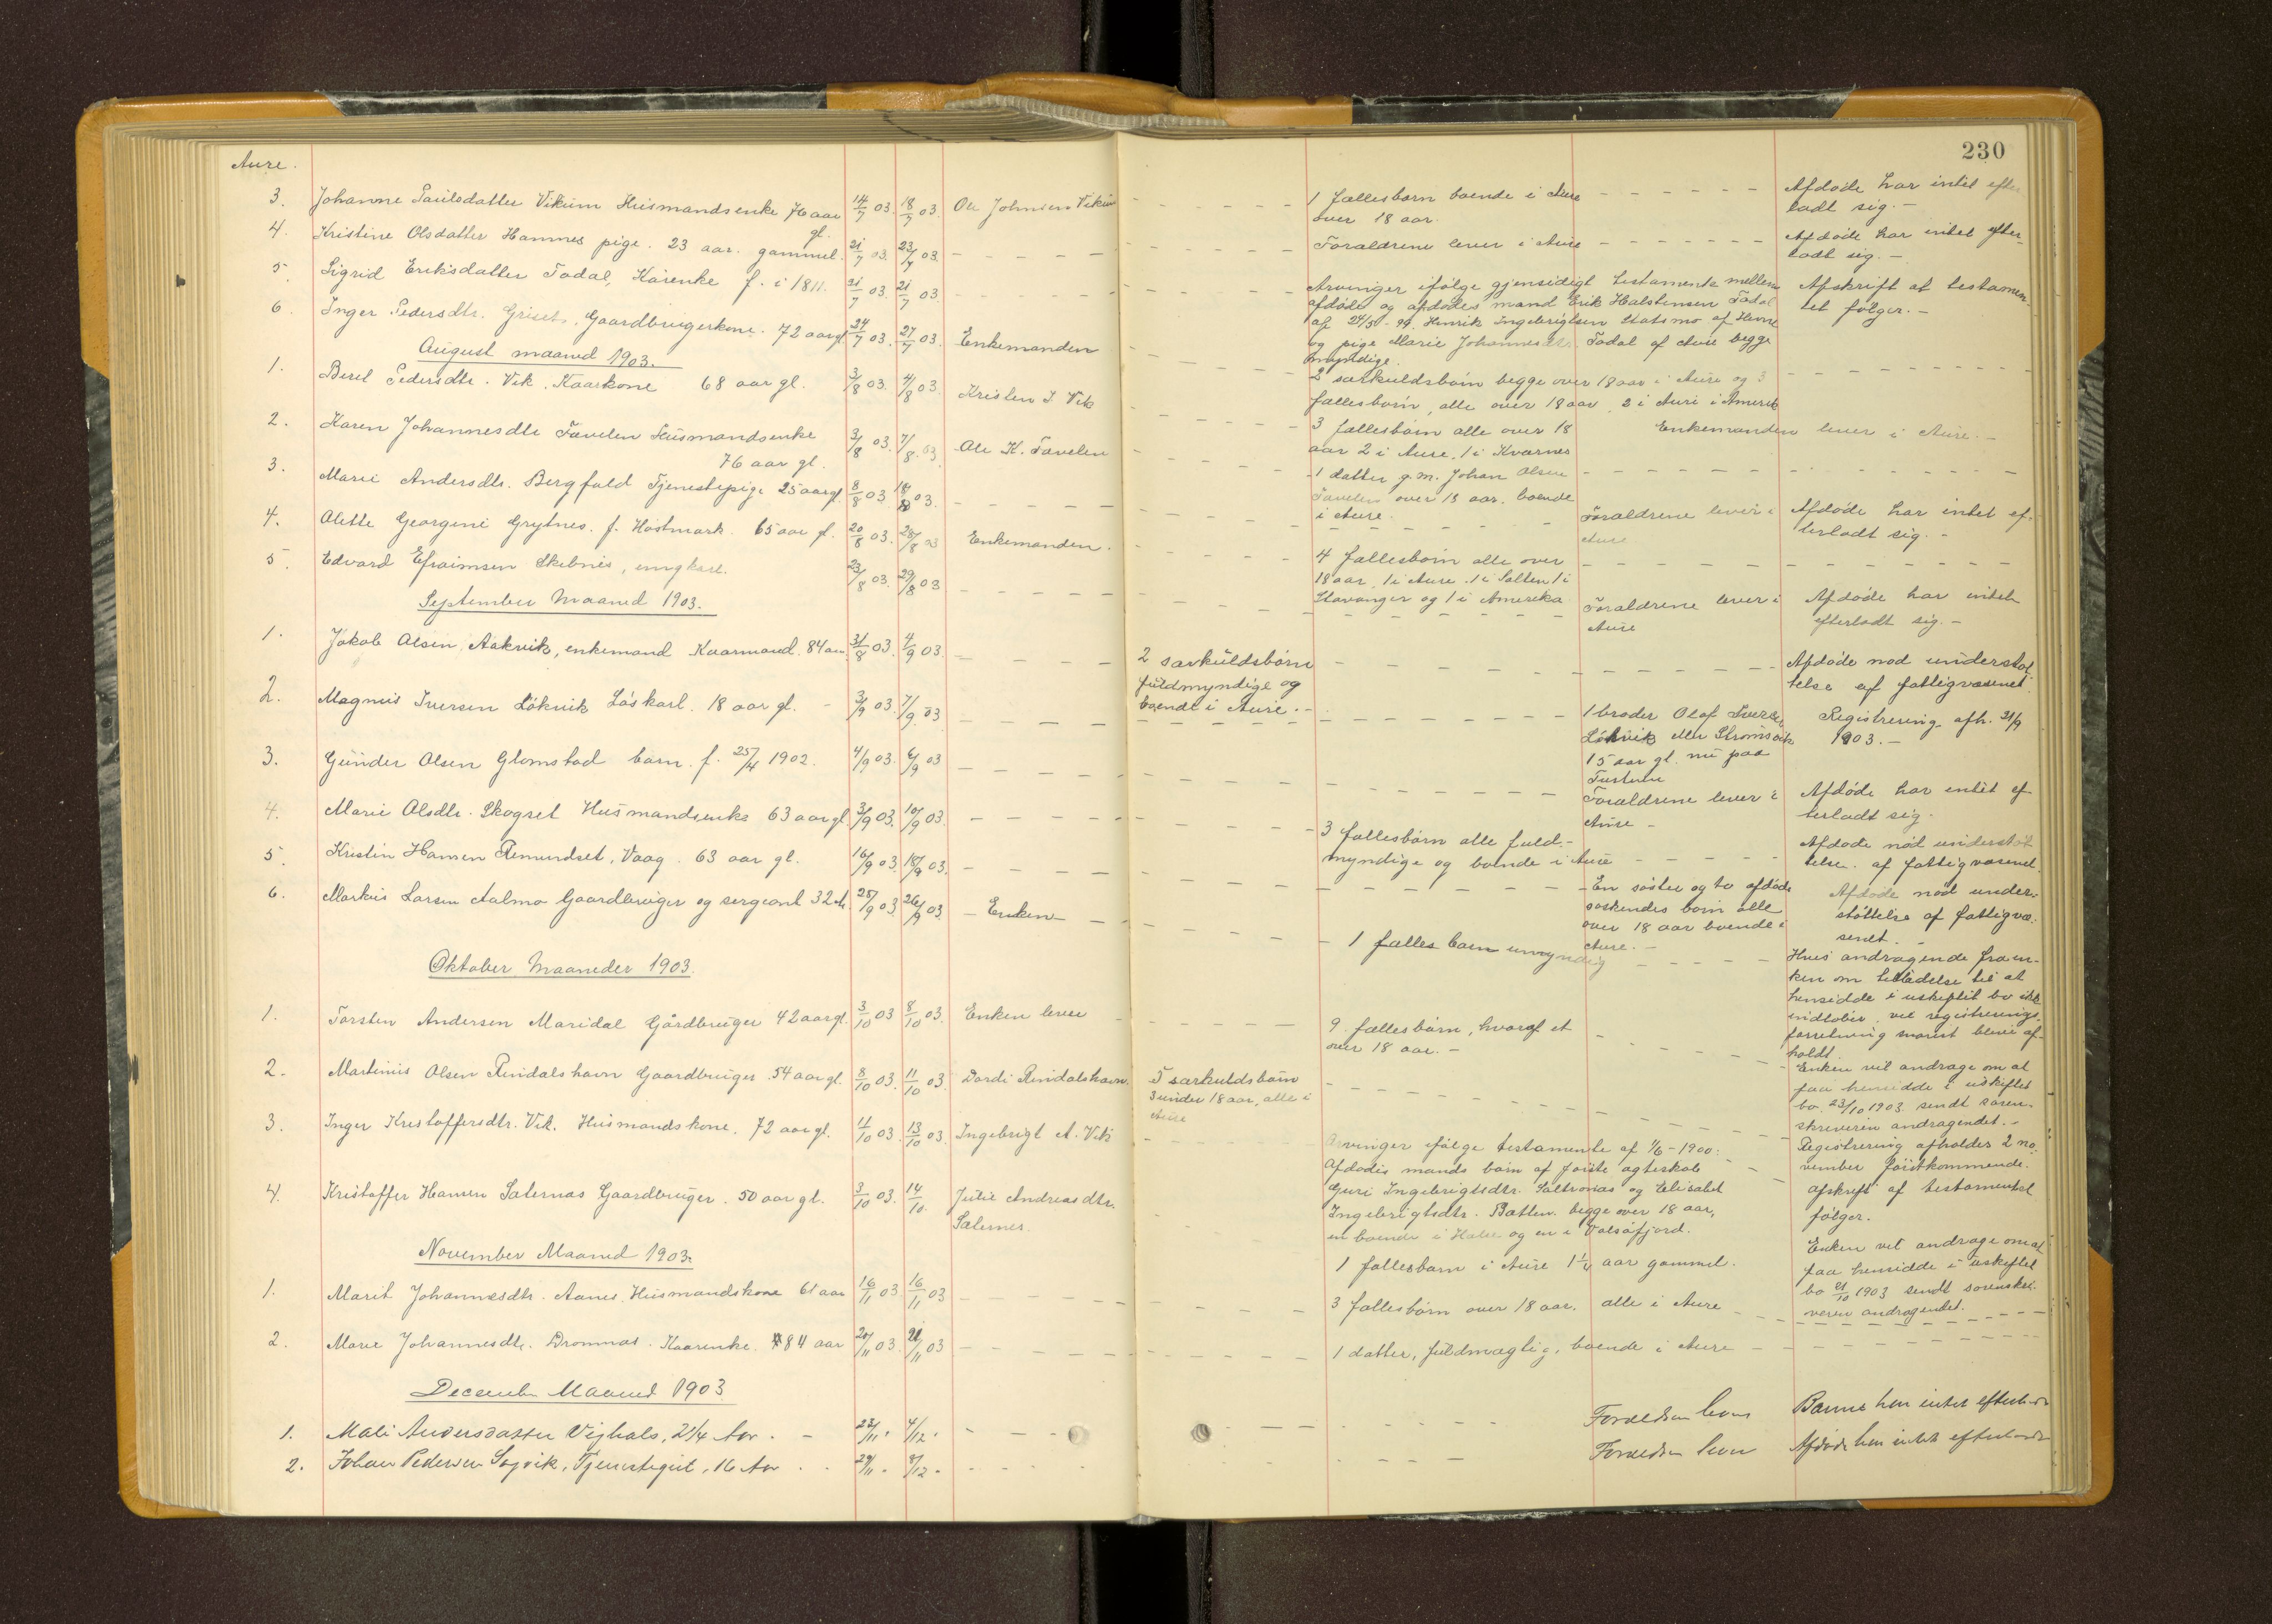 230
Aure.
3. Johanne Paulsdatter Vikum Husmandsenke 76 aar gl. 14/7 03. 18/7 03. Ole Johnsen Vikum
1 fællesbarn boende i Aure
over 18 aar.
Afdøde har intet efter
ladt sig. -
4. Kristine Olsdatter Hamnes pige. 23 aar. gammel. 21/7 03. 23/7 03.
Forældrene lever i Aure
Afdøde har intet efter-
ladt sig. -
5. Sigrid Eriksdatter Todal, Kårenke f. i 1811. 21/7 03. 21/7 03
Arvinger ifølge gjensidigt testamente mellem
afdøde og afdødes mand Erik Halstensen Todal
af 24/5 - 99. Henrik Ingebrigtsen Statsmo af Hevne
og pige Marie Johannesdtr. Todal af Aure begge
myndige.
Afskrift af testamen-
tet følger. -
6. Inger Pedersdtr. Griset, Gaardbrugerkone. 72 aar gl. 24/7 03. 27/7 03. Enkemanden
2 særkuldsbørn begge over 18 aar i Aure og 3
fællesbørn, alle over 18 aar, 2 i Aure i Amerik
August maaned 1903.
1. Beret Pedersdtr. Vik. Kaarkone 68 aar gl. 3/8 03. 4/8 03. Kristen I. Vik
3 fællesbørn alle over 18
aar 2 i Aure, 1 i Kvernes
Enkemanden lever i Aure. -
2. Karen Johannesdtr Tævelen Husmandsenke
76 aar gl. 3/8 03. 7/8. 03. Ole K. Tævelen
1 datter g. m. Johan Olsen
Tævelen over 18 aar. boende
i Aure.
3. Marie Andersdtr. Bergfald Tjenestepige 25 aar gl. 8/8 03 18/8 03.
Forældrene lever i
Aure
Afdøde har intet ef-
terladt sig. -
4. Alette Georgine Grytnes. f. Høstmark. 65 aar gl. 20/8 03. 28/8 03 Enkemanden.
4 fællesbørn alle over
18 aar, 1 i Aure. 1 i Salten 1 i
Stavanger og 1 i Amerika
5. Edvard Efraimsen Skebnes, ungkarl. 23/8 03. 29/8 03
Forældrene lever i
Aure
Afdøde har intet
efterladt sig. -
September Maaned 1903.
1. Jakob Olsen, Aakvik, enkemand Kaarmand. 84 aar. 31/8 03. 4/9 03.
2 særkuldsbørn
fuldmyndige og
boende i Aure. -
Afdøde nød understøt
telse af fattigvæsenet.
2. Magnus Iversen Løkvik Løskarl. 18 aar gl. - 3/9 03. 7/9. 03
1 broder Olaf Iversen
Løkvik eller Strømsvik
15 aar gl. nu paa
Tustern
Registrering afh. 21/9
1903. -
3. Gunder Olsen Glomstad barn. f. 25/4 1902. 4/9 03. 6/9 03
Forældrene lever i
Aure -
Afdøde har intet ef
terladt sig.
4. Marie Olsdtr. Skogset Husmandsenke 63 aar gl. 3/9 03. 10/9 03.
3 fællesbørn alle fuld-
myndige og boende i Aure
Afdøde nød understøt
telse. af fattigvæsenet.
5. Kristin Hansen Remundset, Vaag. 63 aar gl. 16/9 03. 18/9 03.
En søster og to afdøde
søskendes børn alle
over 18 aar boende i
Aure. -
Afdøde nød under-
støttelse af fattigvæ-
senet. -
6. Markus Larsen Aalmo Gaardbruger og sergeant 32 Ar. 25/9 03. 26/9 03. - Enken -
1 fælles barn umyndig
Hvis andragende fra en-
ken om tilladelse til at
hensidde i uskiftet bo ikke
indløber vil registrerings
forretning snarest blive af-
holdt.
Oktober Maaneder 1903.
1. Torsten Andersen Maridal Gårdbruger 42 aar gl. 3/10 03 8/10 03. Enken lever
9 fællesbørn, hvoraf et
over 18 aar. -
Enken vil andrage om at
faa hensidde i uskiftet
bo. 23/10 1903 sendt soren-
skriveren andragendet. -
2. Martinus Olsen Rindalshavn Gaardbruger 54 aar gl. 8/10 03. 11/10 03. Dordi Rindalshavn.
5 særkuldsbørn
3 under 18 aar, alle i
Aure
Registrering afholdes 2 no
vember førstkommende.
3. Inger Kristoffersdtr. Vik. Husmandskone. 72 aar gl. 11/10 03. 13/10 03. Ingebrigt A. Vik
Arvinger ifølge testamente af 1/6 - 1900:
Afdødes mands børn af første ægteskab
Guri Ingebrigtsdtr. Saltrønas og Elisabet
Ingebrigtsdtr. Batten. begge over 18 aar,
en boende i Halse og en i Valsøfjord.
afskrift af testamentet
følger.
4. Kristoffer Hansen Saternas Gaardbruger. 50 aar gl. 3/10 03. 14/10. Julie Andreasdtr.
Saternes.
1 fællesbarn i Aure 1 1/4 aar gammel.
Enken vil andrage om at
faa hensidde i uskiftet
bo 21/10 1903 sendt sorenskri-
veren andragendet.
November Maaned 1903.
1. Marit Johannesdtr. Aanes, Husmandskone 61 aar 16/11 03. 16/11 03
3 fællesbørn over 18 aar. alle i Aure
2. Marie Johannesdtr. Dromnas. Kaarenke. 84 aar 20/11 03. 21/11 03
1 datter, fuldmægtig, boende i Aure
December Maaned 1903
1. Mali Andersdatter Vighals, 2 1/4 Aar. - 23/11 " 4/12 "
Forældren leve
Barnet har intet efterladt
2. Johan Pedersen Søvik, Tjenestegut, 16 Aar 29/11 " 8/12 "
Forældren lever
Afdøde har intet efterladt